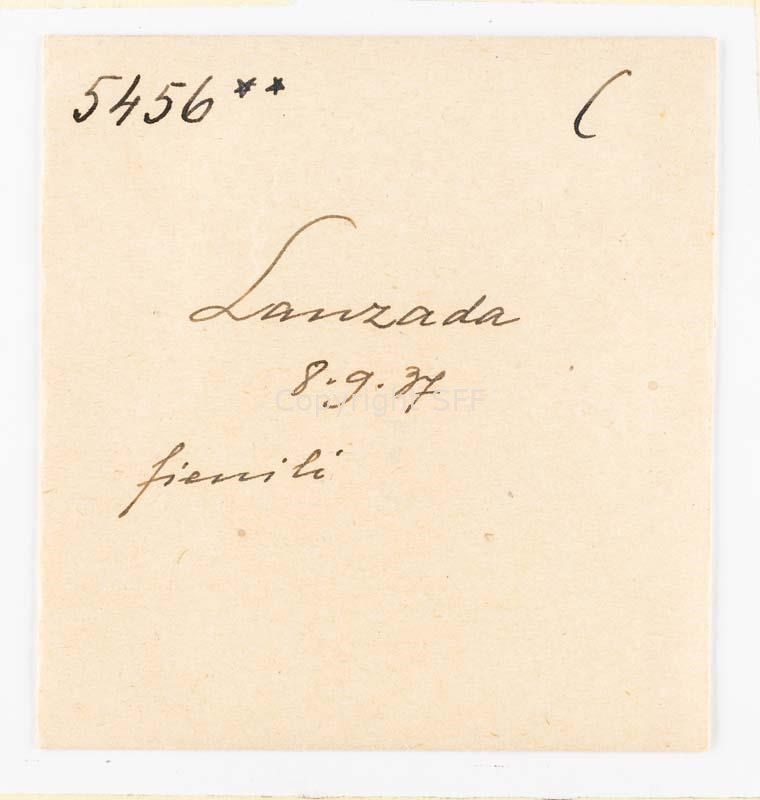 5456** (
Lanzada
8.9.37
Copyright SFF
fienili